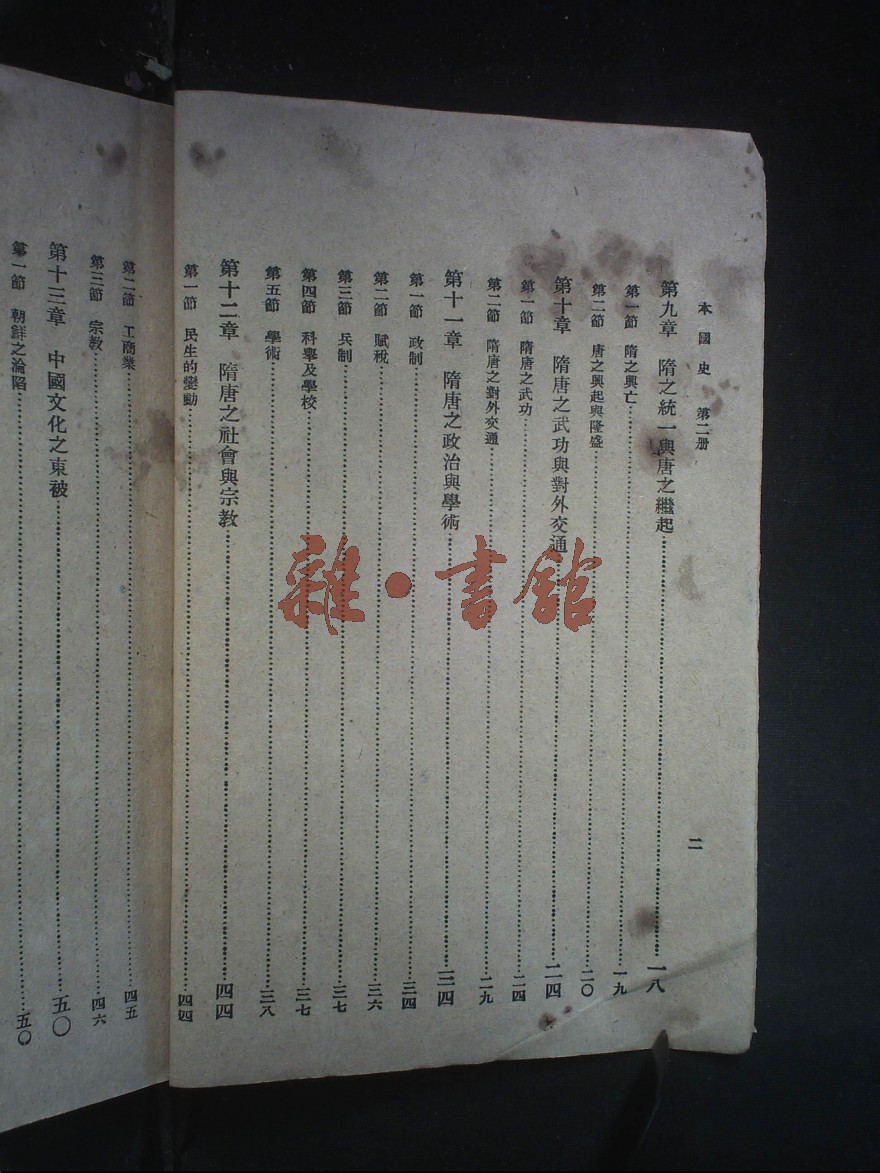 本國史 第二册
二
第九章 隋之統一與唐之繼起 一八
第一節 隋之興亡 一九
第二節 唐之興起與隆盛 二〇
第十章 隋唐之武功與對外交通 二四
第一節 隋唐之武功 二四
第二節 隋唐之對外交通 二九
第十一章 隋唐之政治與學術 三四
第一節 政制 三四
第二節 賦稅 三六
第三節 兵制 三七
第四節 科舉及學校 三七
第五節 學術 三八
第十二章 隋唐之社會與宗教 四四
第一節 民生的變動 四四
第二節 工商業 四五
第三節 宗教 四六
第十三章 中國文化之東被 五〇
第一節 朝鮮之淪陷 五〇
雜·書館